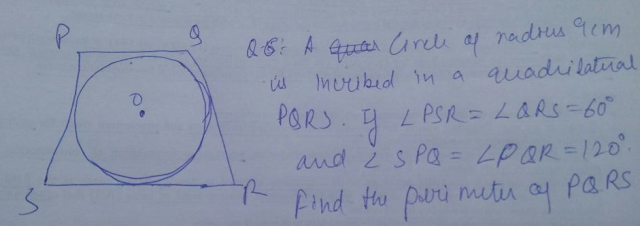 P Q
O
S R
Q5: A Circle of radius 9cm
is incribed in a quadrilateral
PQRS. If ∠PSR = ∠QRS = 60°
and ∠SPQ = ∠PQR = 120°.
Find the perimeter of PQRS